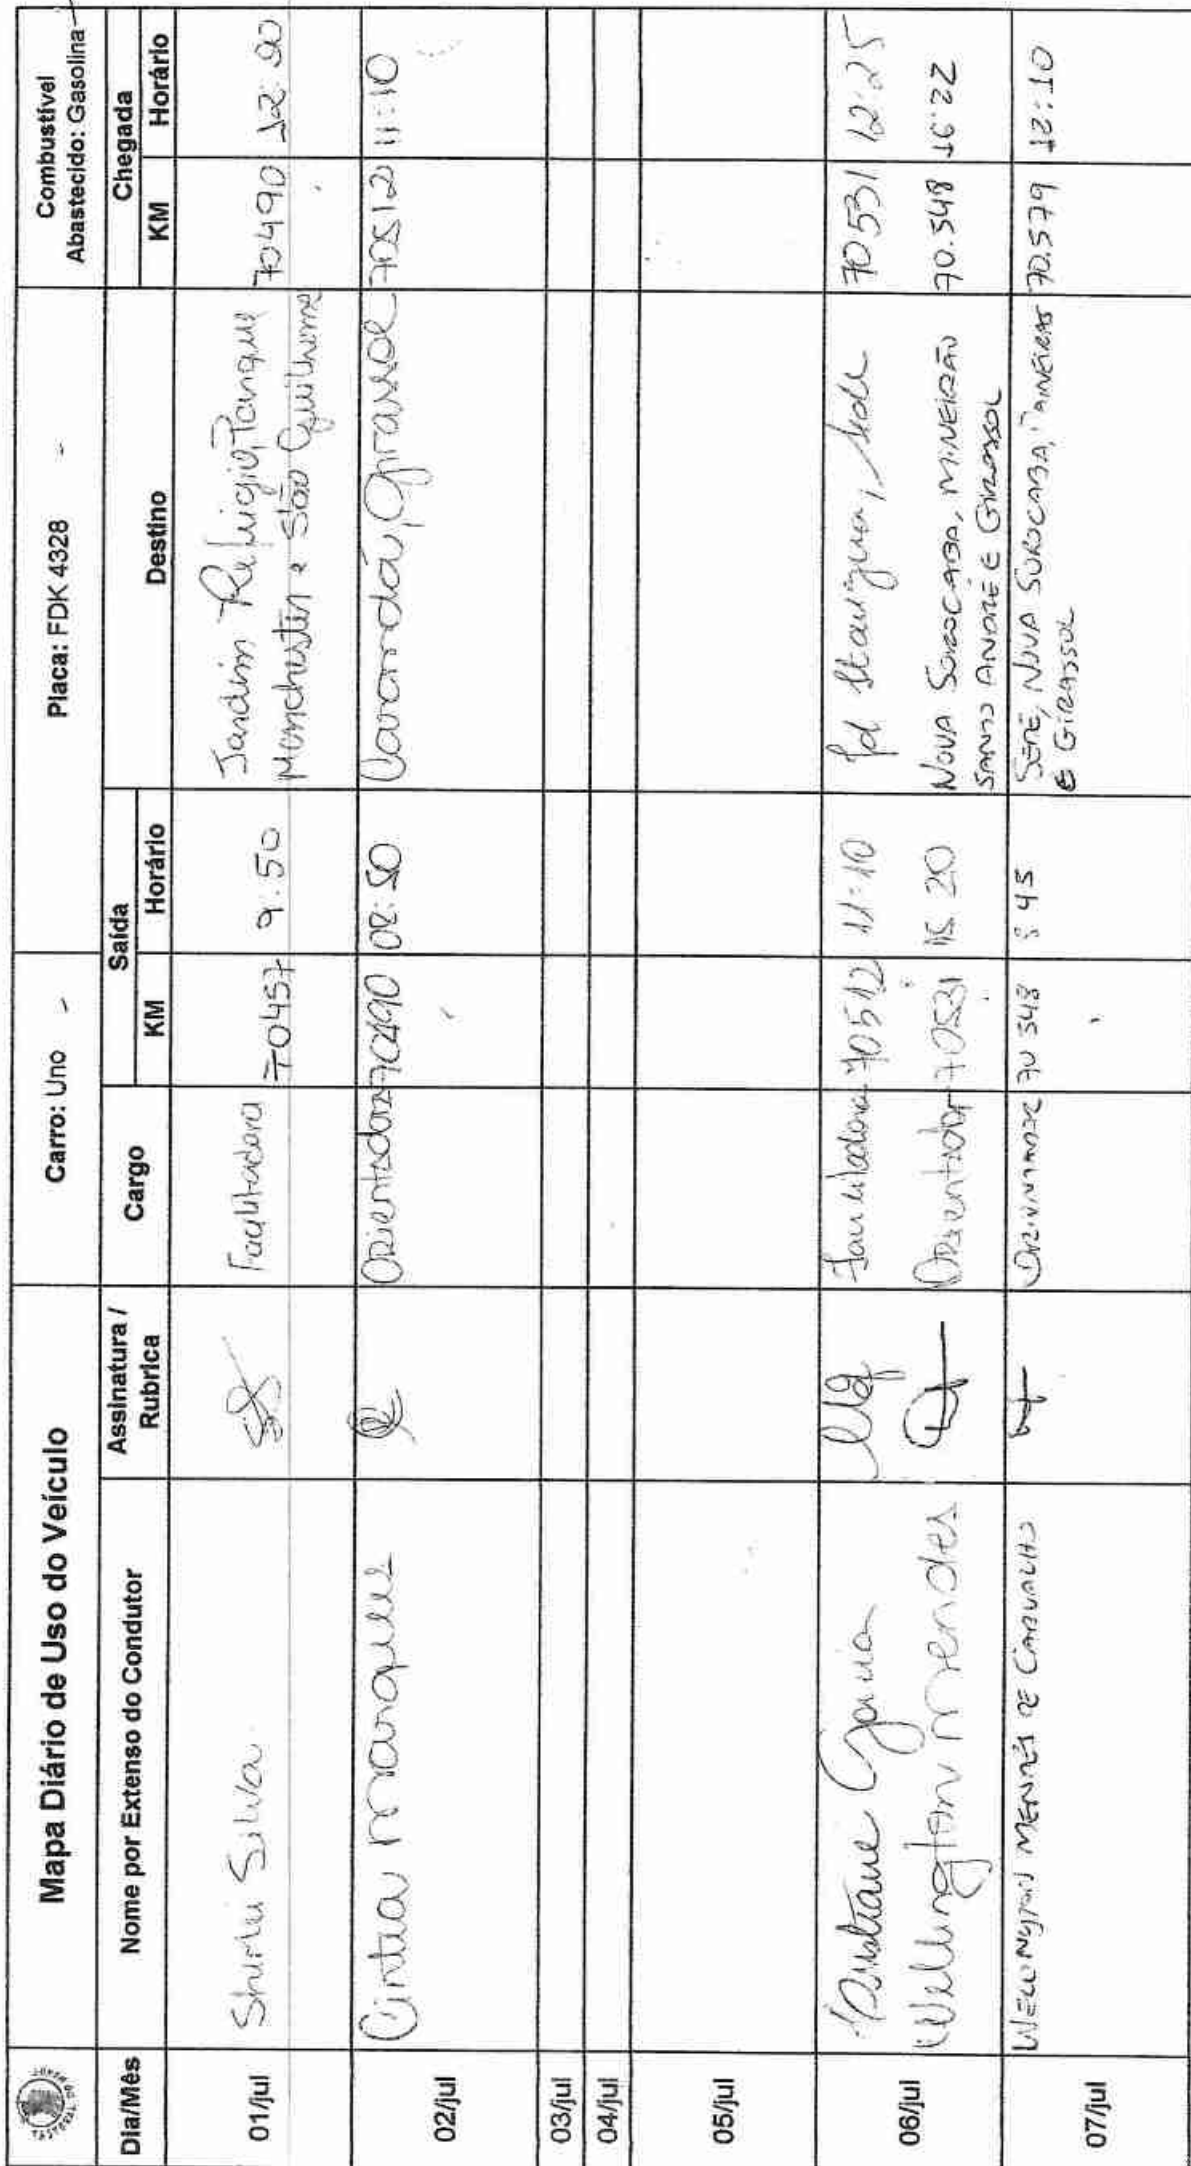 Mapa Diário de Uso do Veículo
Carro: Uno
Placa: FDK 4328
Combustível
Abastecido: Gasolina
Dia/Mês
Nome por Extenso do Condutor
Assinatura /
Rubrica
Cargo
Saída
KM
Horário
Destino
Chegada
KM
Horário
01/jul
Shirlei Silva
Facilitadora
70457
9:50
Jardim Refúgio, Parque
Manchester e São Guilherme
70490
02/jul
Cintia Marques
Orientadora
70490
08:50
Carandá, Girassol
70512
11:10
03/jul
04/jul
05/jul
06/jul
Garcia
70512
11:10
Jd
70531
12:25
Wellington Mendes
Orientador
70531
15 20
Nova Sorocaba, Mineirão
Santo André e Girassol
70.548
16:22
07/jul
Wellington Mendes de Carvalho
70 548
8 45
Sede, Nova Sorocaba,
e Girassol
70.579
12:10